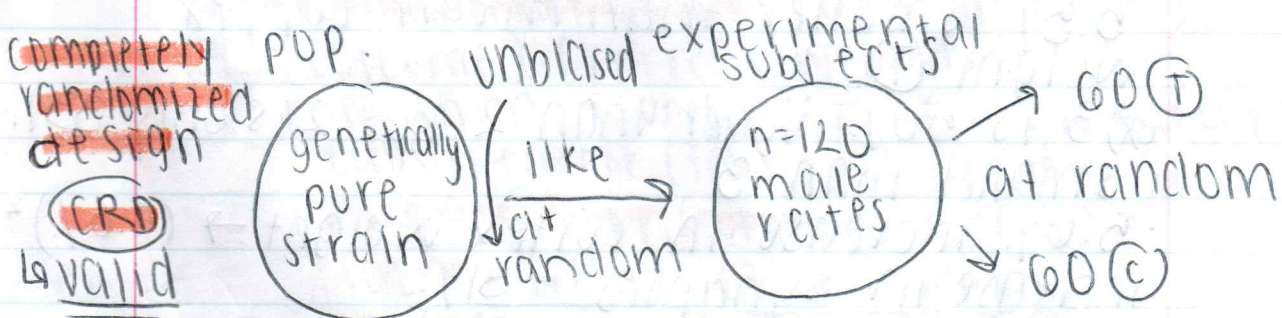 completely
randomized
design
CRD
↳ valid
pop.
genetically
pure
strain
unbiased
like
at
random
experimental
subjects
n=120
male
rates
60 T
at random
60 C